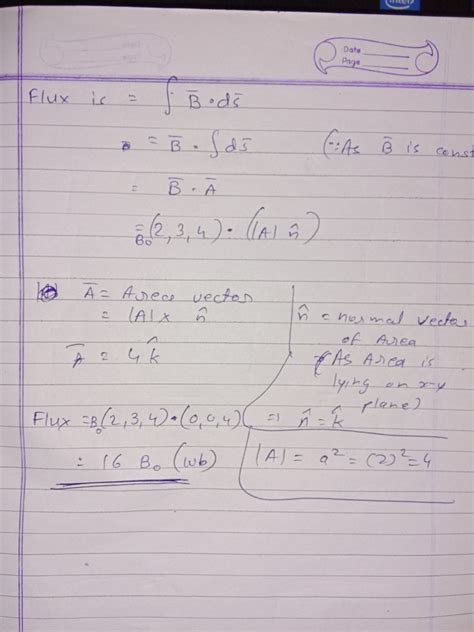 intel
Date
Page
Flux is = ∫ B̄ • ds̄
= B̄ • ∫ ds̄ (∵ As B̄ is const
= B̄ • Ā
= B₀(2, 3, 4) • (|A| n̂)
Ā = Area vector
= |A| × n̂
Ā = 4 k̂
n̂ = normal vector
of Area
(As Area is
lying on x-y
plane)
⇒ n̂ = k̂
Flux = B₀(2, 3, 4) • (0, 0, 4)
= 16 B₀ (wb)
|A| = a² = (2)² = 4